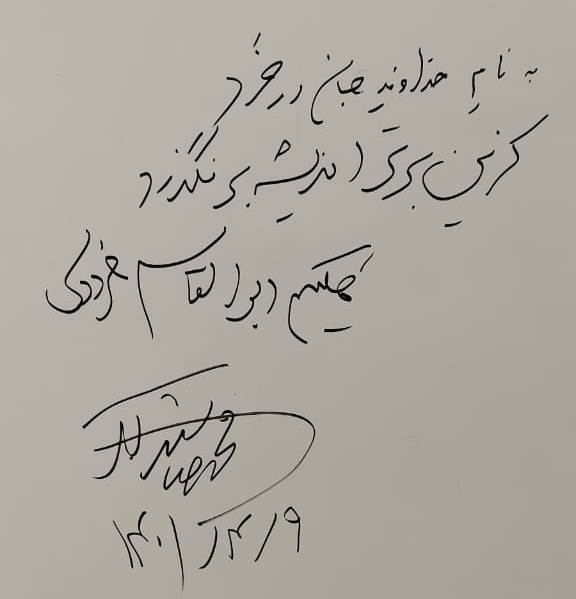 به نام خداوند جان و خرد
کزین برتر اندیشه بر نگذرد
حکیم ابوالقاسم فردوسی
۱۴۰۱/۴/۹